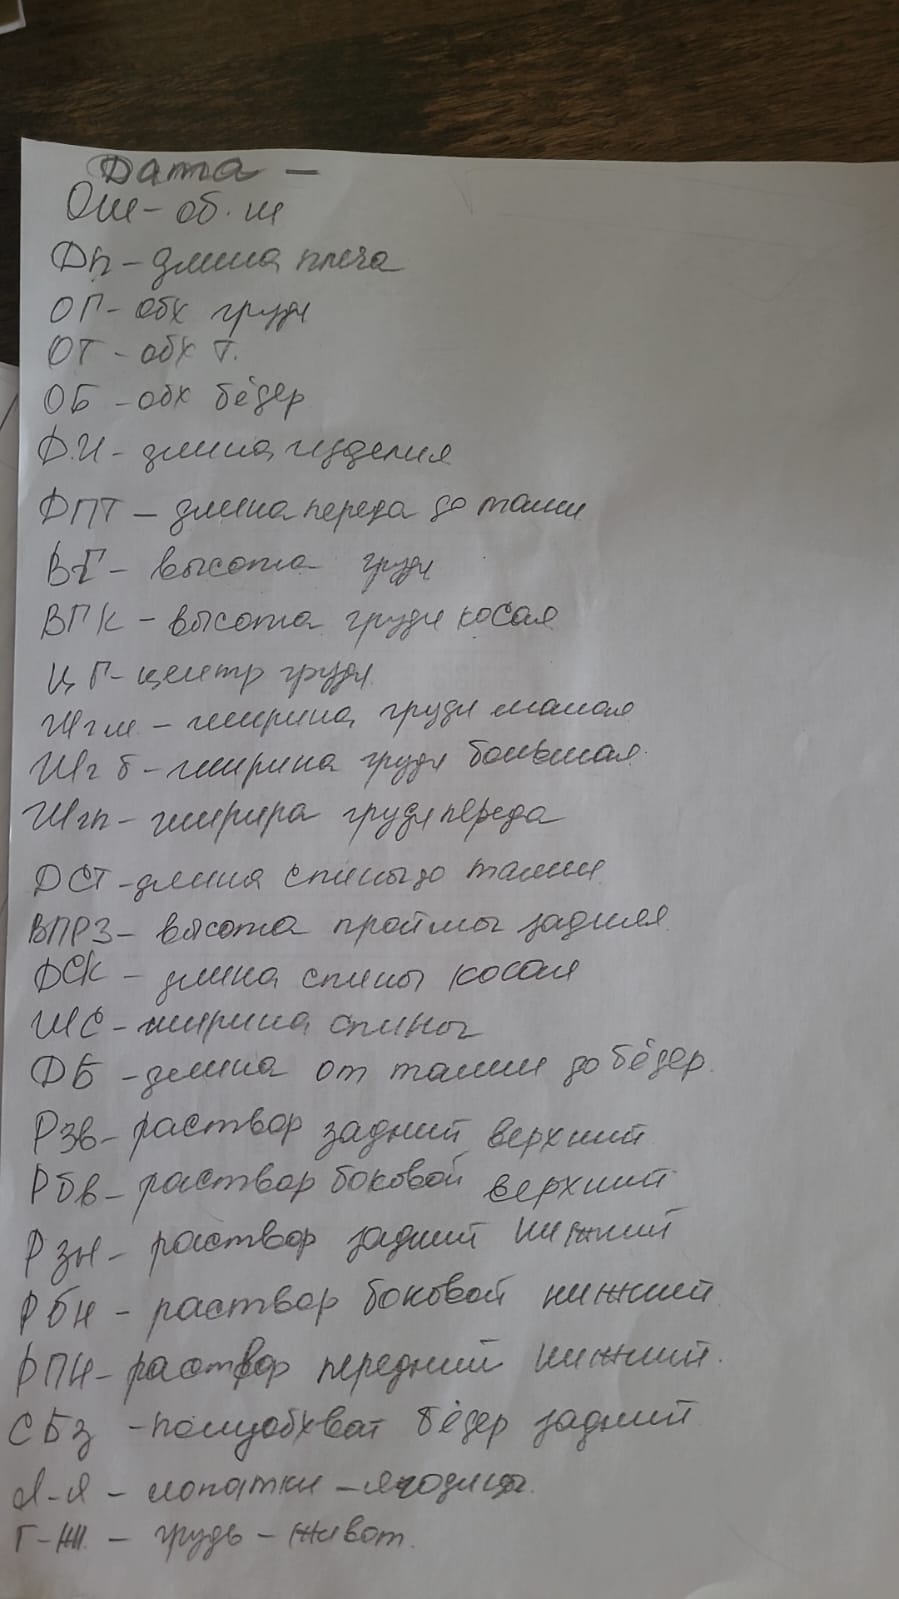 Дата —
ОШ - об. ш
Дп - длина плеча
ОГ - обх груди
ОТ - обх т.
ОБ - обх бёдер
Д.И - длина изделия
ДПТ - длина переда до талии
ВГ - высота груди
ВПК - высота груди косая
ЦГ - центр груди
Шгм - ширина груди малая
Шг б - ширина груди большая
Шгп - ширира груди переда
ДСТ - длина спины до талии
ВПРЗ - высота проймы задняя
ДСК - длина спины косая
ШС - ширина спины
ДБ - длина от талии до бёдер.
Рзв - раствор задний верхний
Рбв - раствор боковой верхний
Рзн - раствор задний нижний
РБН - раствор боковой нижний
РПН - раствор передний нижний.
СБз - полуобхват бёдер задний
Л-Я - лопатки - ягодицы.
Г-Ж - грудь - живот.